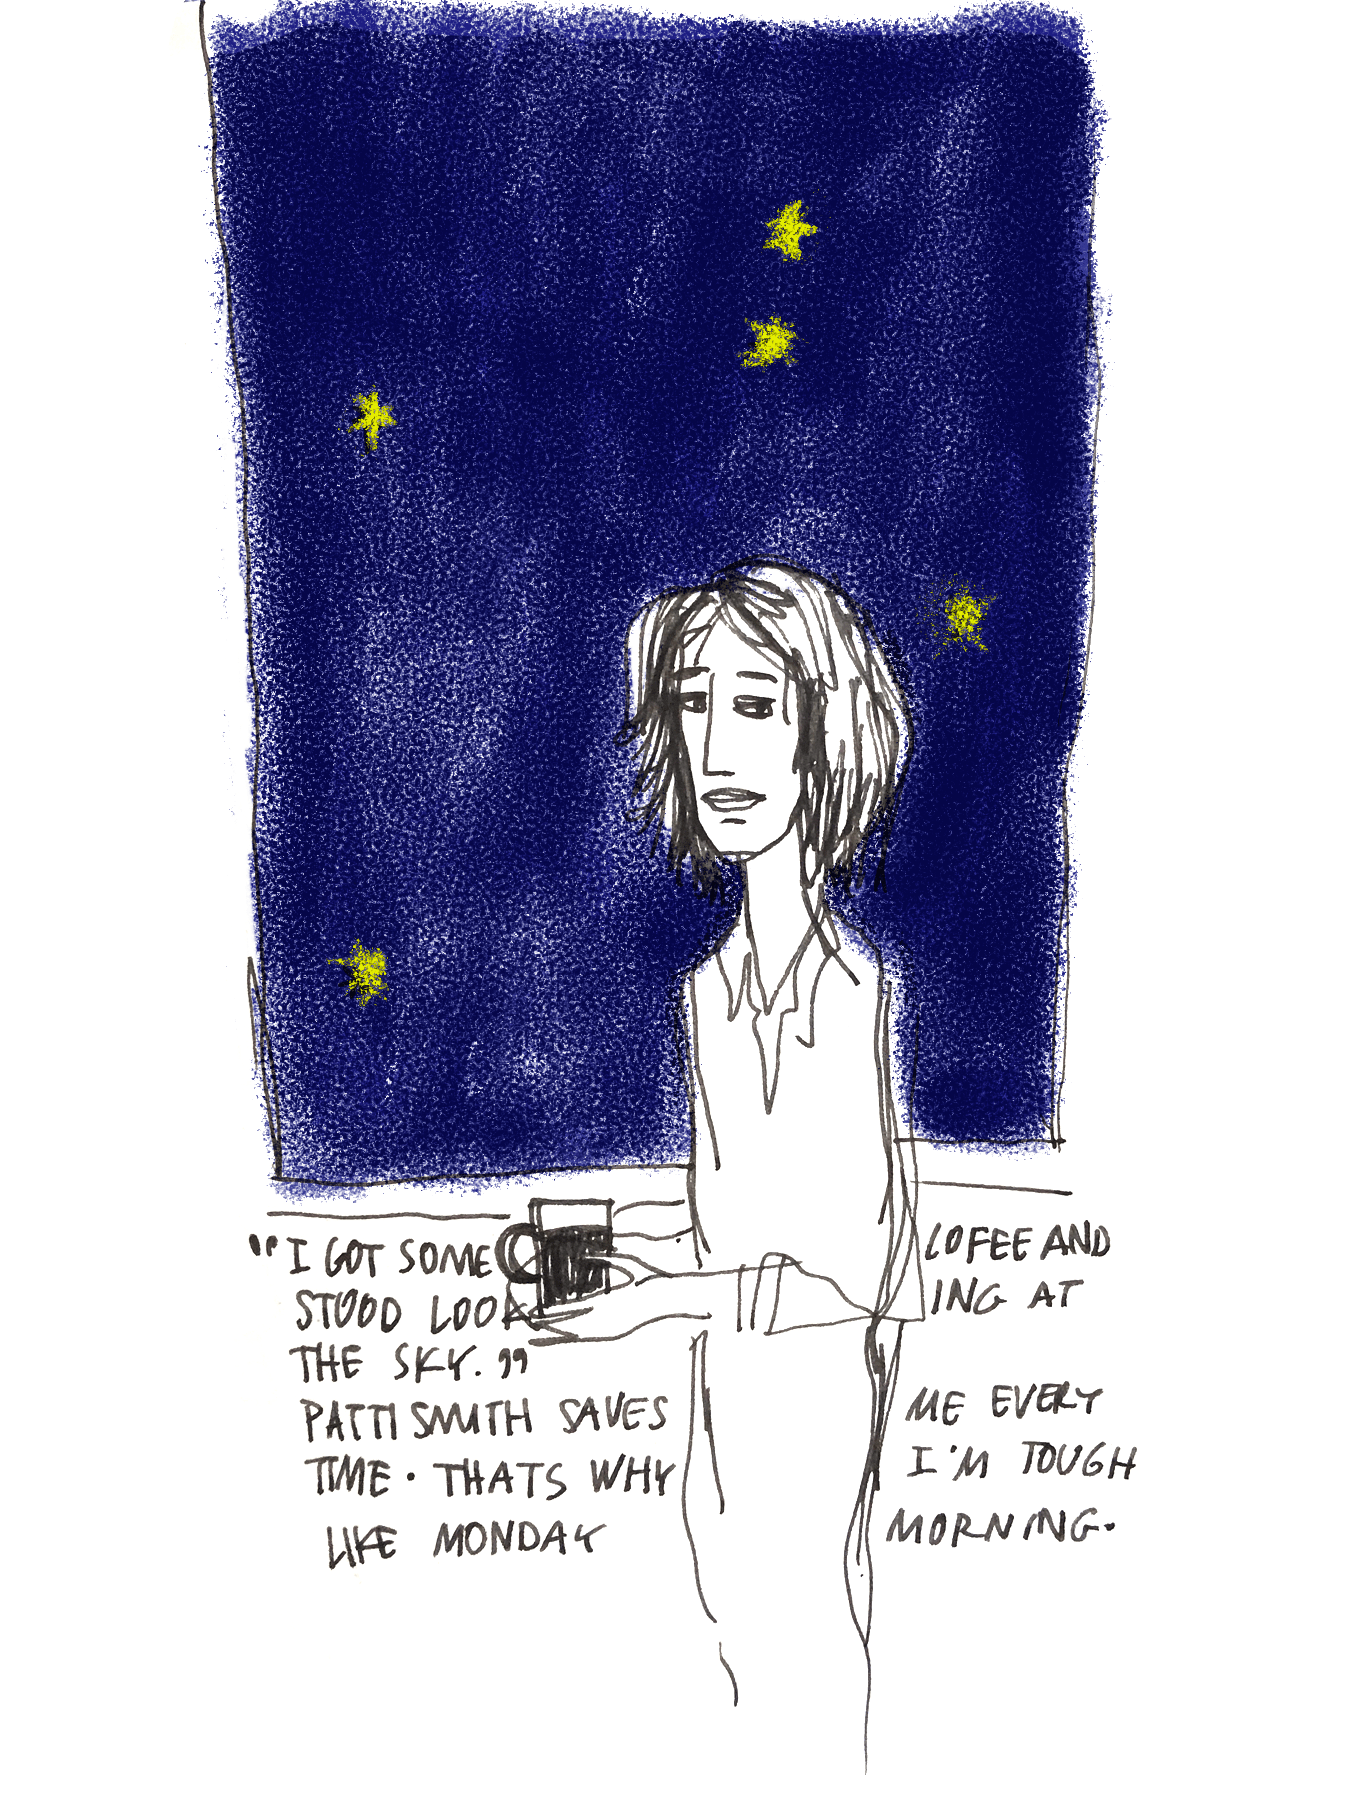 "I GOT SOME COFEE AND
STOOD LOOKING AT
THE SKY."
PATTI SMITH SAVES ME EVERY
TIME. THATS WHY I'M TOUGH
LIKE MONDAY MORNING.